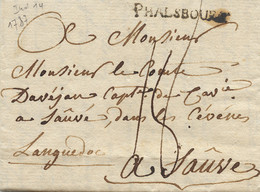 Jan 14
1783
PHALSBOURG
A Monsieur
Monsieur le Comte
Davéjan Capt. de Cav.ie
a Sauve, dans les Cévénes
Languedoc
a Sauve